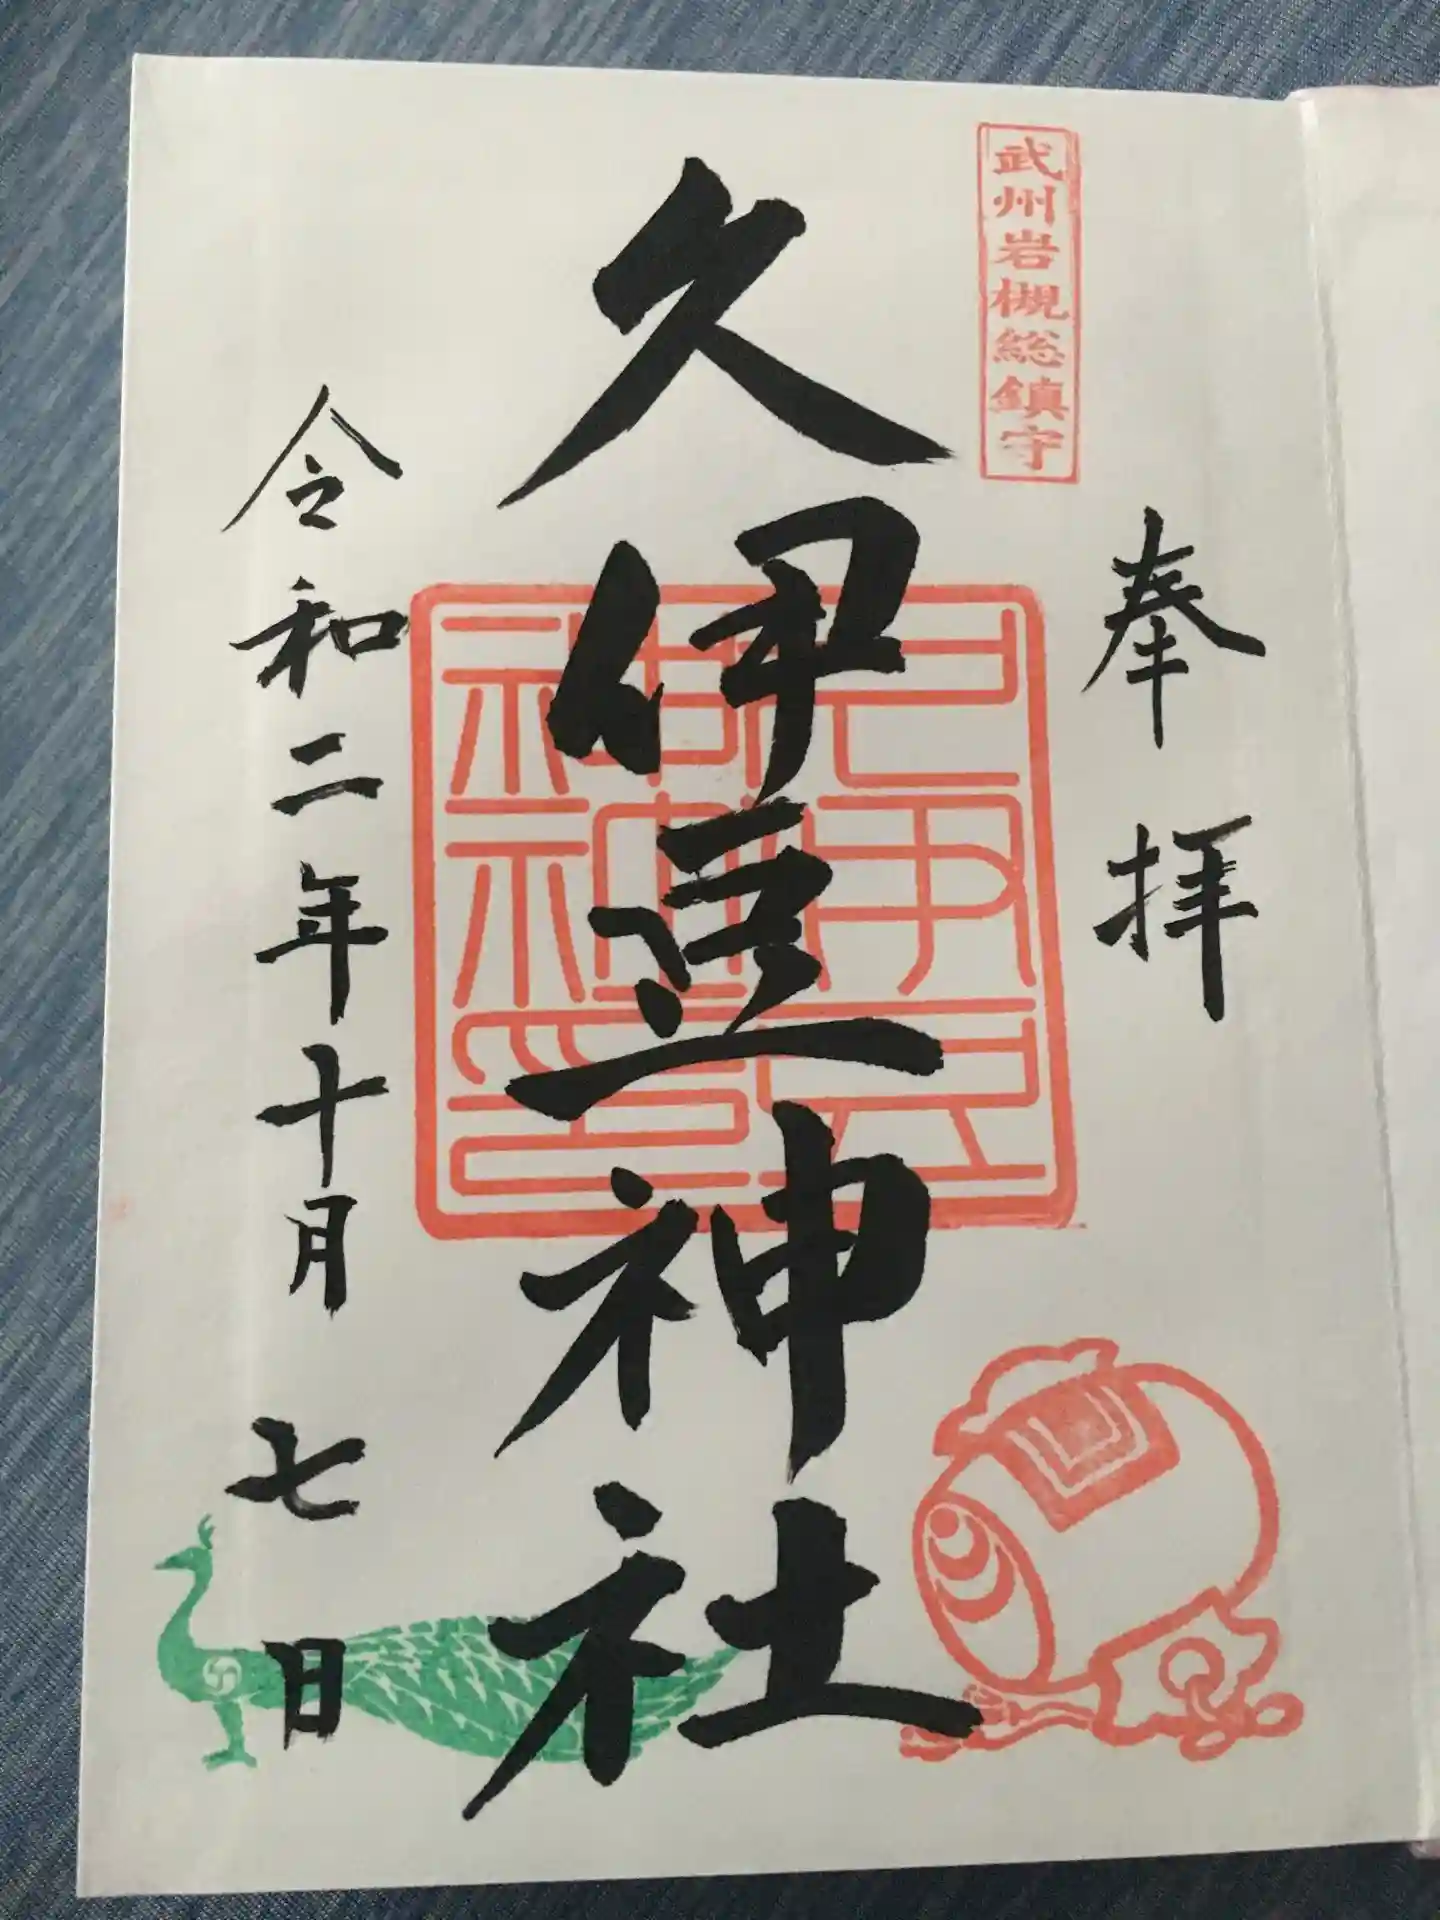 奉拝
武州岩槻総鎮守
久伊豆神社
久伊豆神社印
令和二年十月七日